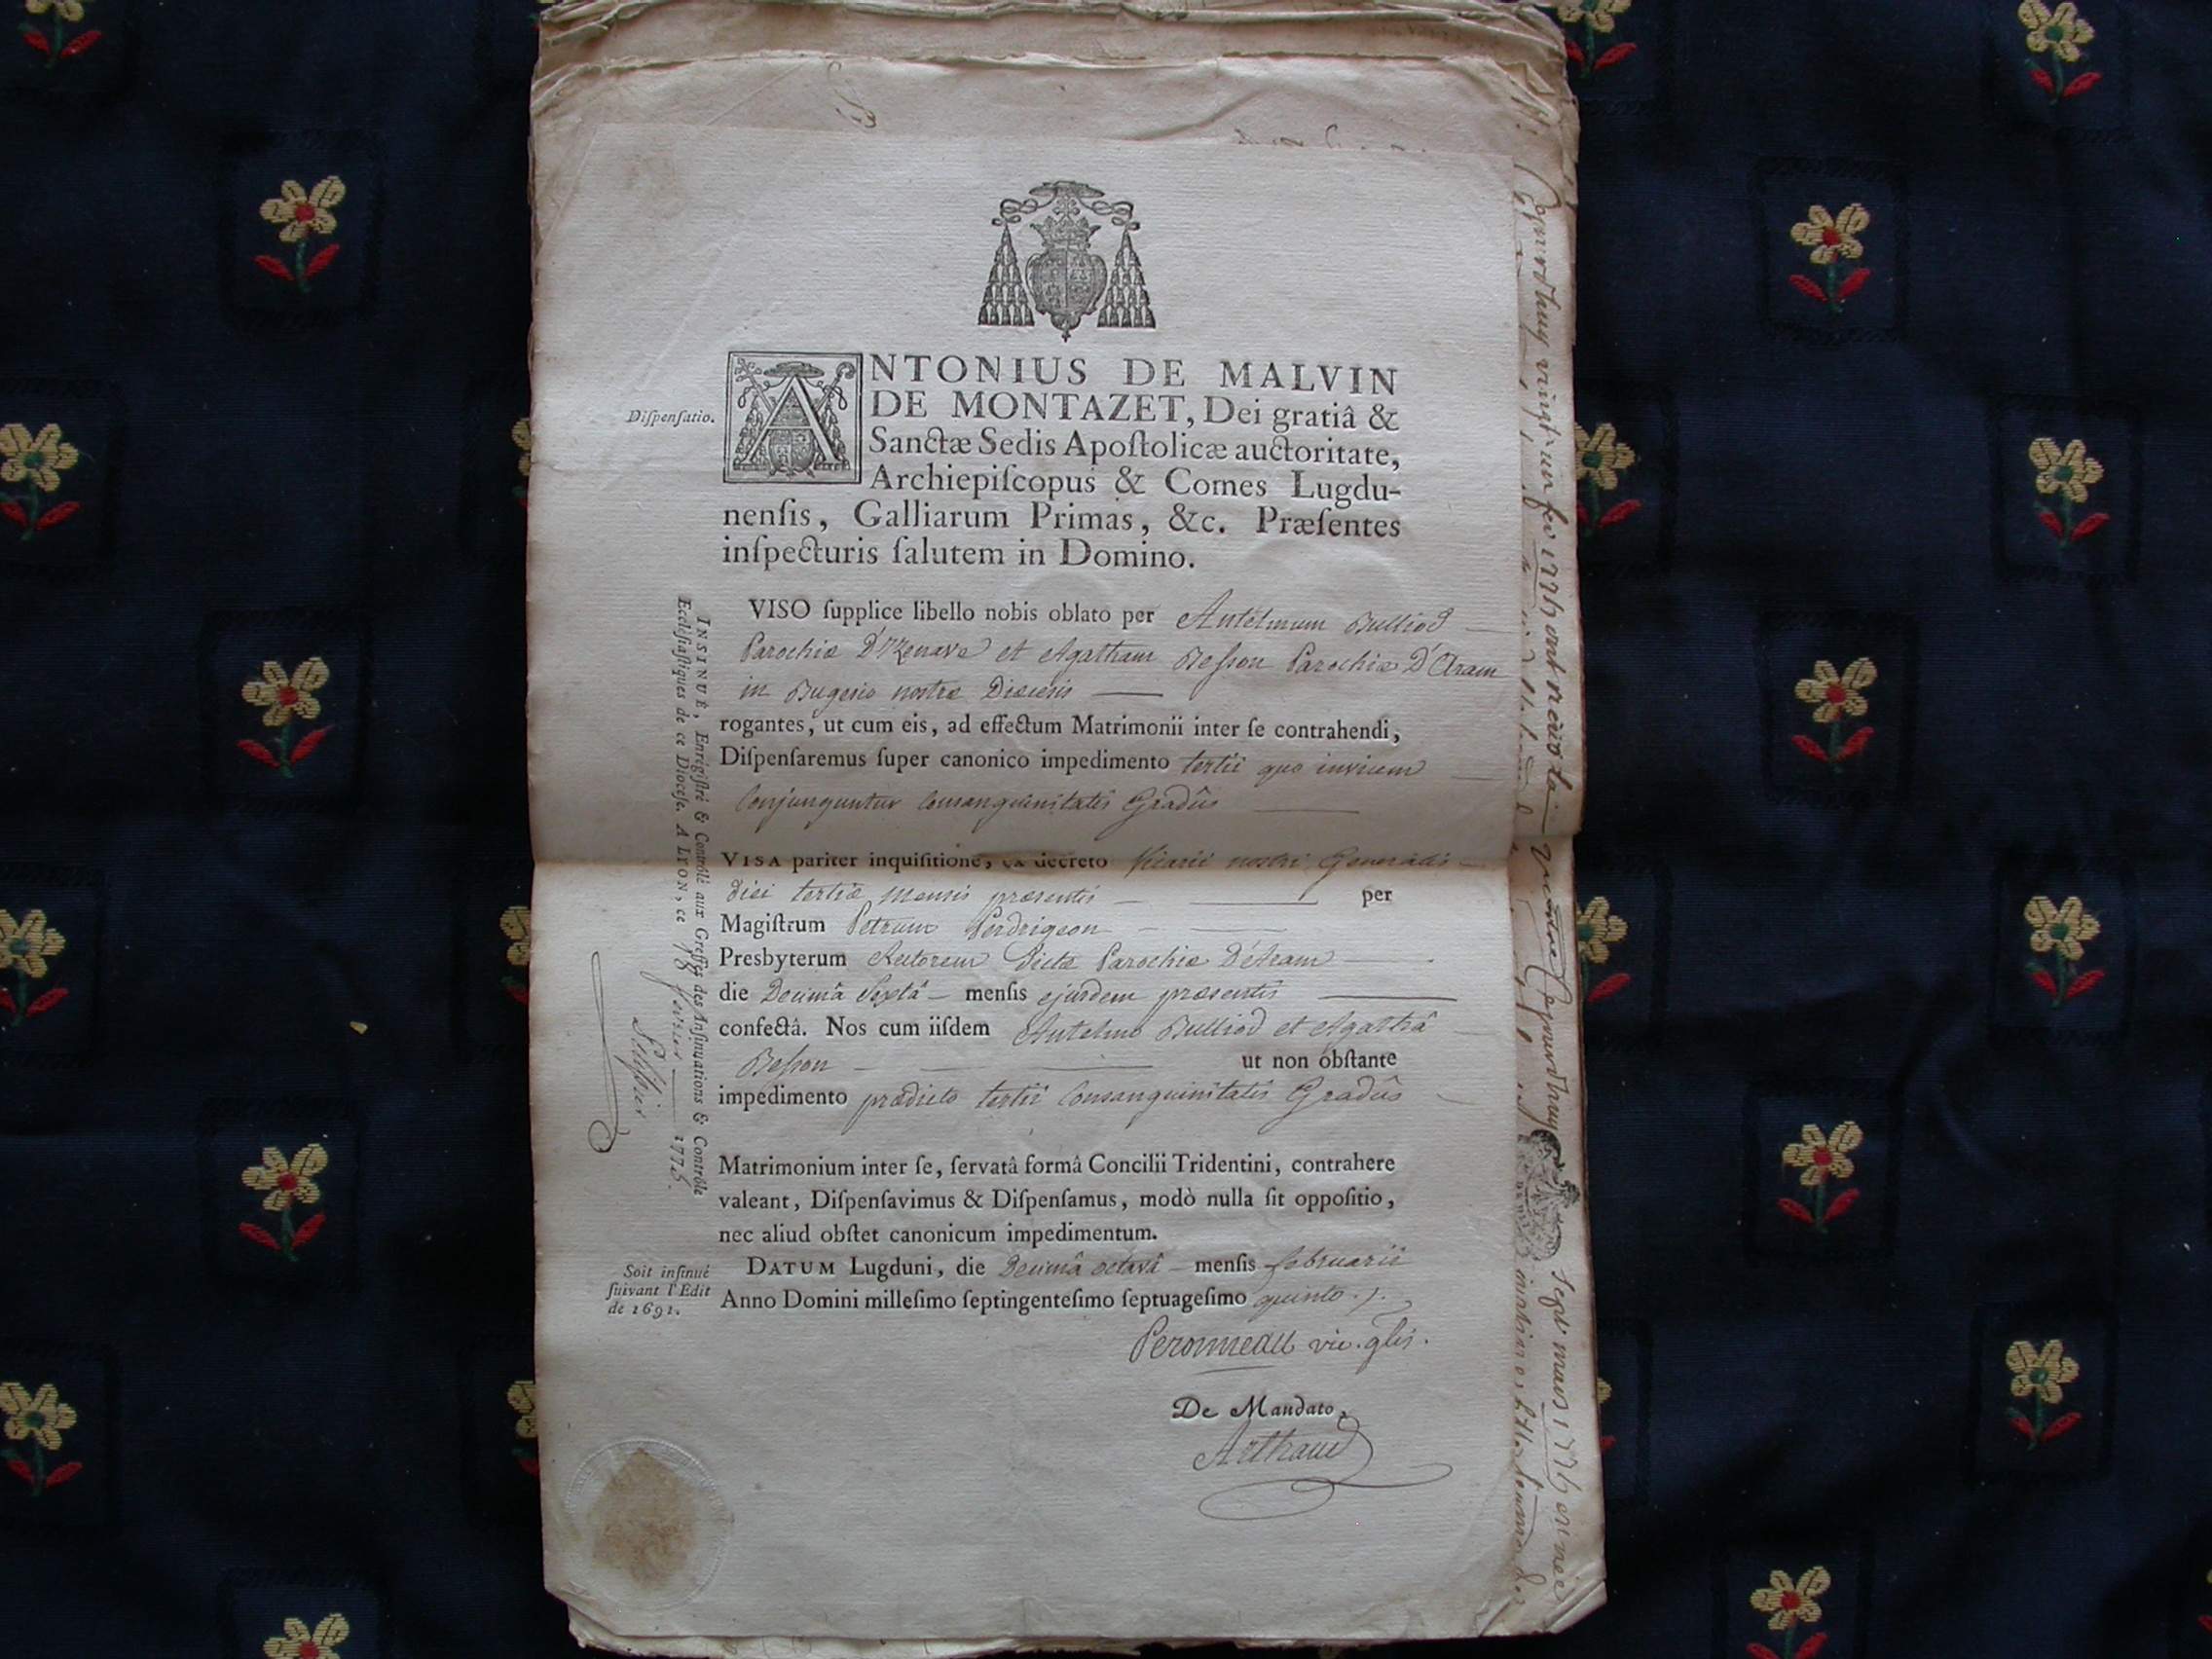 ANTONIUS DE MALVIN
DE MONTAZET, Dei gratiâ &
Diſpenſatio.
Sanctæ Sedis Apoſtolicæ auctoritate,
Archiepiſcopus & Comes Lugdu-
nenſis, Galliarum Primas, &c. Præſentes
inſpecturis ſalutem in Domino.
VISO ſupplice libello nobis oblato per Antelmum Bulliod
Parochiæ D' et Agatham Beſson Parochiæ D'
in Bugesio nostræ Diœcesis
rogantes, ut cum eis, ad effectum Matrimonii inter ſe contrahendi,
Diſpenſaremus ſuper canonico impedimento tertii quo invicem
Conjunguntur Consanguinitatis Gradûs
VISA pariter inquiſitione, ex decreto Vicarii nostri Generalis
diei tertiæ mensis præsentis per
Magiſtrum Petrum Perdrigeon
Presbyterum Rectorem dictæ Parochiæ
die Decimâ Sextâ menſis ejusdem præsentis
confectâ. Nos cum iiſdem Antelmo Bulliod et Agathâ
Beſson ut non obſtante
impedimento prædicto tertii Consanguinitatis Gradûs
Matrimonium inter ſe, ſervatâ formâ Concilii Tridentini, contrahere
valeant, Diſpenſavimus & Diſpenſamus, modò nulla ſit oppoſitio,
nec aliud obſtet canonicum impedimentum.
DATUM Lugduni, die Decimâ octavâ menſis februarii
Anno Domini milleſimo ſeptingenteſimo ſeptuageſimo quinto.
Peronneau vic. glis.
De Mandato,
Arthaud
Soit inſinué
ſuivant l'Edit
de 1691.
INSINUÉ, Enrégiſtré & Contrôlé aux Greffes des Inſinuations & Contrôle
Eccléſiaſtiques de ce Diocèſe. A LYON, ce 18 février 1775.